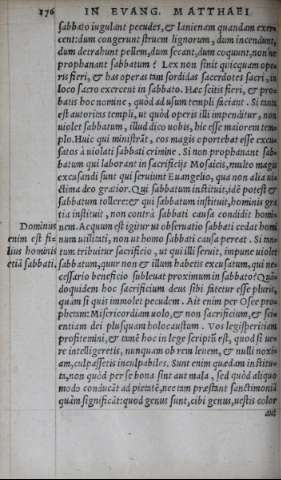 276 IN EVANG. MATTHAEI
sabbato iugulant pecudes, & lanienam quandam exer-
cent: dum congerunt struem lignorum, dum incendunt,
dum detrahunt pellem, dum secant, dum coquunt, non ne
prophanant sabbatum? Lex non sinit quicquam ope-
ris fieri, & has operas tam sordidas sacerdotes sacri, in
loco sacro exercent in sabbato. Hæc scitis fieri, & pro-
batis hoc nomine, quòd ad usum templi faciant. Si tanta
est autoritas templi, ut quòd operis illi impenditur, non
uiolet sabbatum, illud dico uobis, hic esse maiorem tem-
plo. Huic qui ministrāt, eos magis oportebat esse excu-
satos à uiolati sabbati crimine. Si non prophanant sab-
batum qui laborant in sacrificijs Mosaicis, multo magis
excusandi sunt qui seruiunt Euangelio, qua non alia ui-
ctima deo gratior. Qui sabbatum instituit, idē potest &
sabbatum tollere: & qui sabbatum instituit, hominis gra
tia instituit, non contrà sabbati causa condidit homi-
Dominus nem. Acquum est igitur ut obseruatio sabbati cedat homi
enim est fi= num utilitati, non ut homo sabbati causa pereat. Si tan-
lius hominis tum tribuitur sacrificio, ut qui illi seruit, impune uiolet
etiā sabbati, sabbatum, quur non & illum habetis excusatum, qui ne-
cessario beneficio subleuat proximum in sabbato? Quā
doquidem hoc sacrificium deus sibi sitecur esse pluris,
quàm si quis immolet pecudem. Ait enim per Osee pro-
phetam: Misericordiam uolo, & non sacrificium, & sci-
entiam dei plusquam holocaustum. Vos legisperitiam
profitemini, & tamē hoc in lege scriptū est, quod si ue-
re intelligeretis, nunquam ob rem leuem, & nulli noxi-
am, culpassetis inculpabiles. Sunt enim quædam institu-
ta, non quòd per se bona sint aut mala, sed quòd aliquo
modo conducāt ad pietatē, nec tam præstant sanctimoniā
quàm significāt: quod genus sunt, cibi genus, uestis color
aut